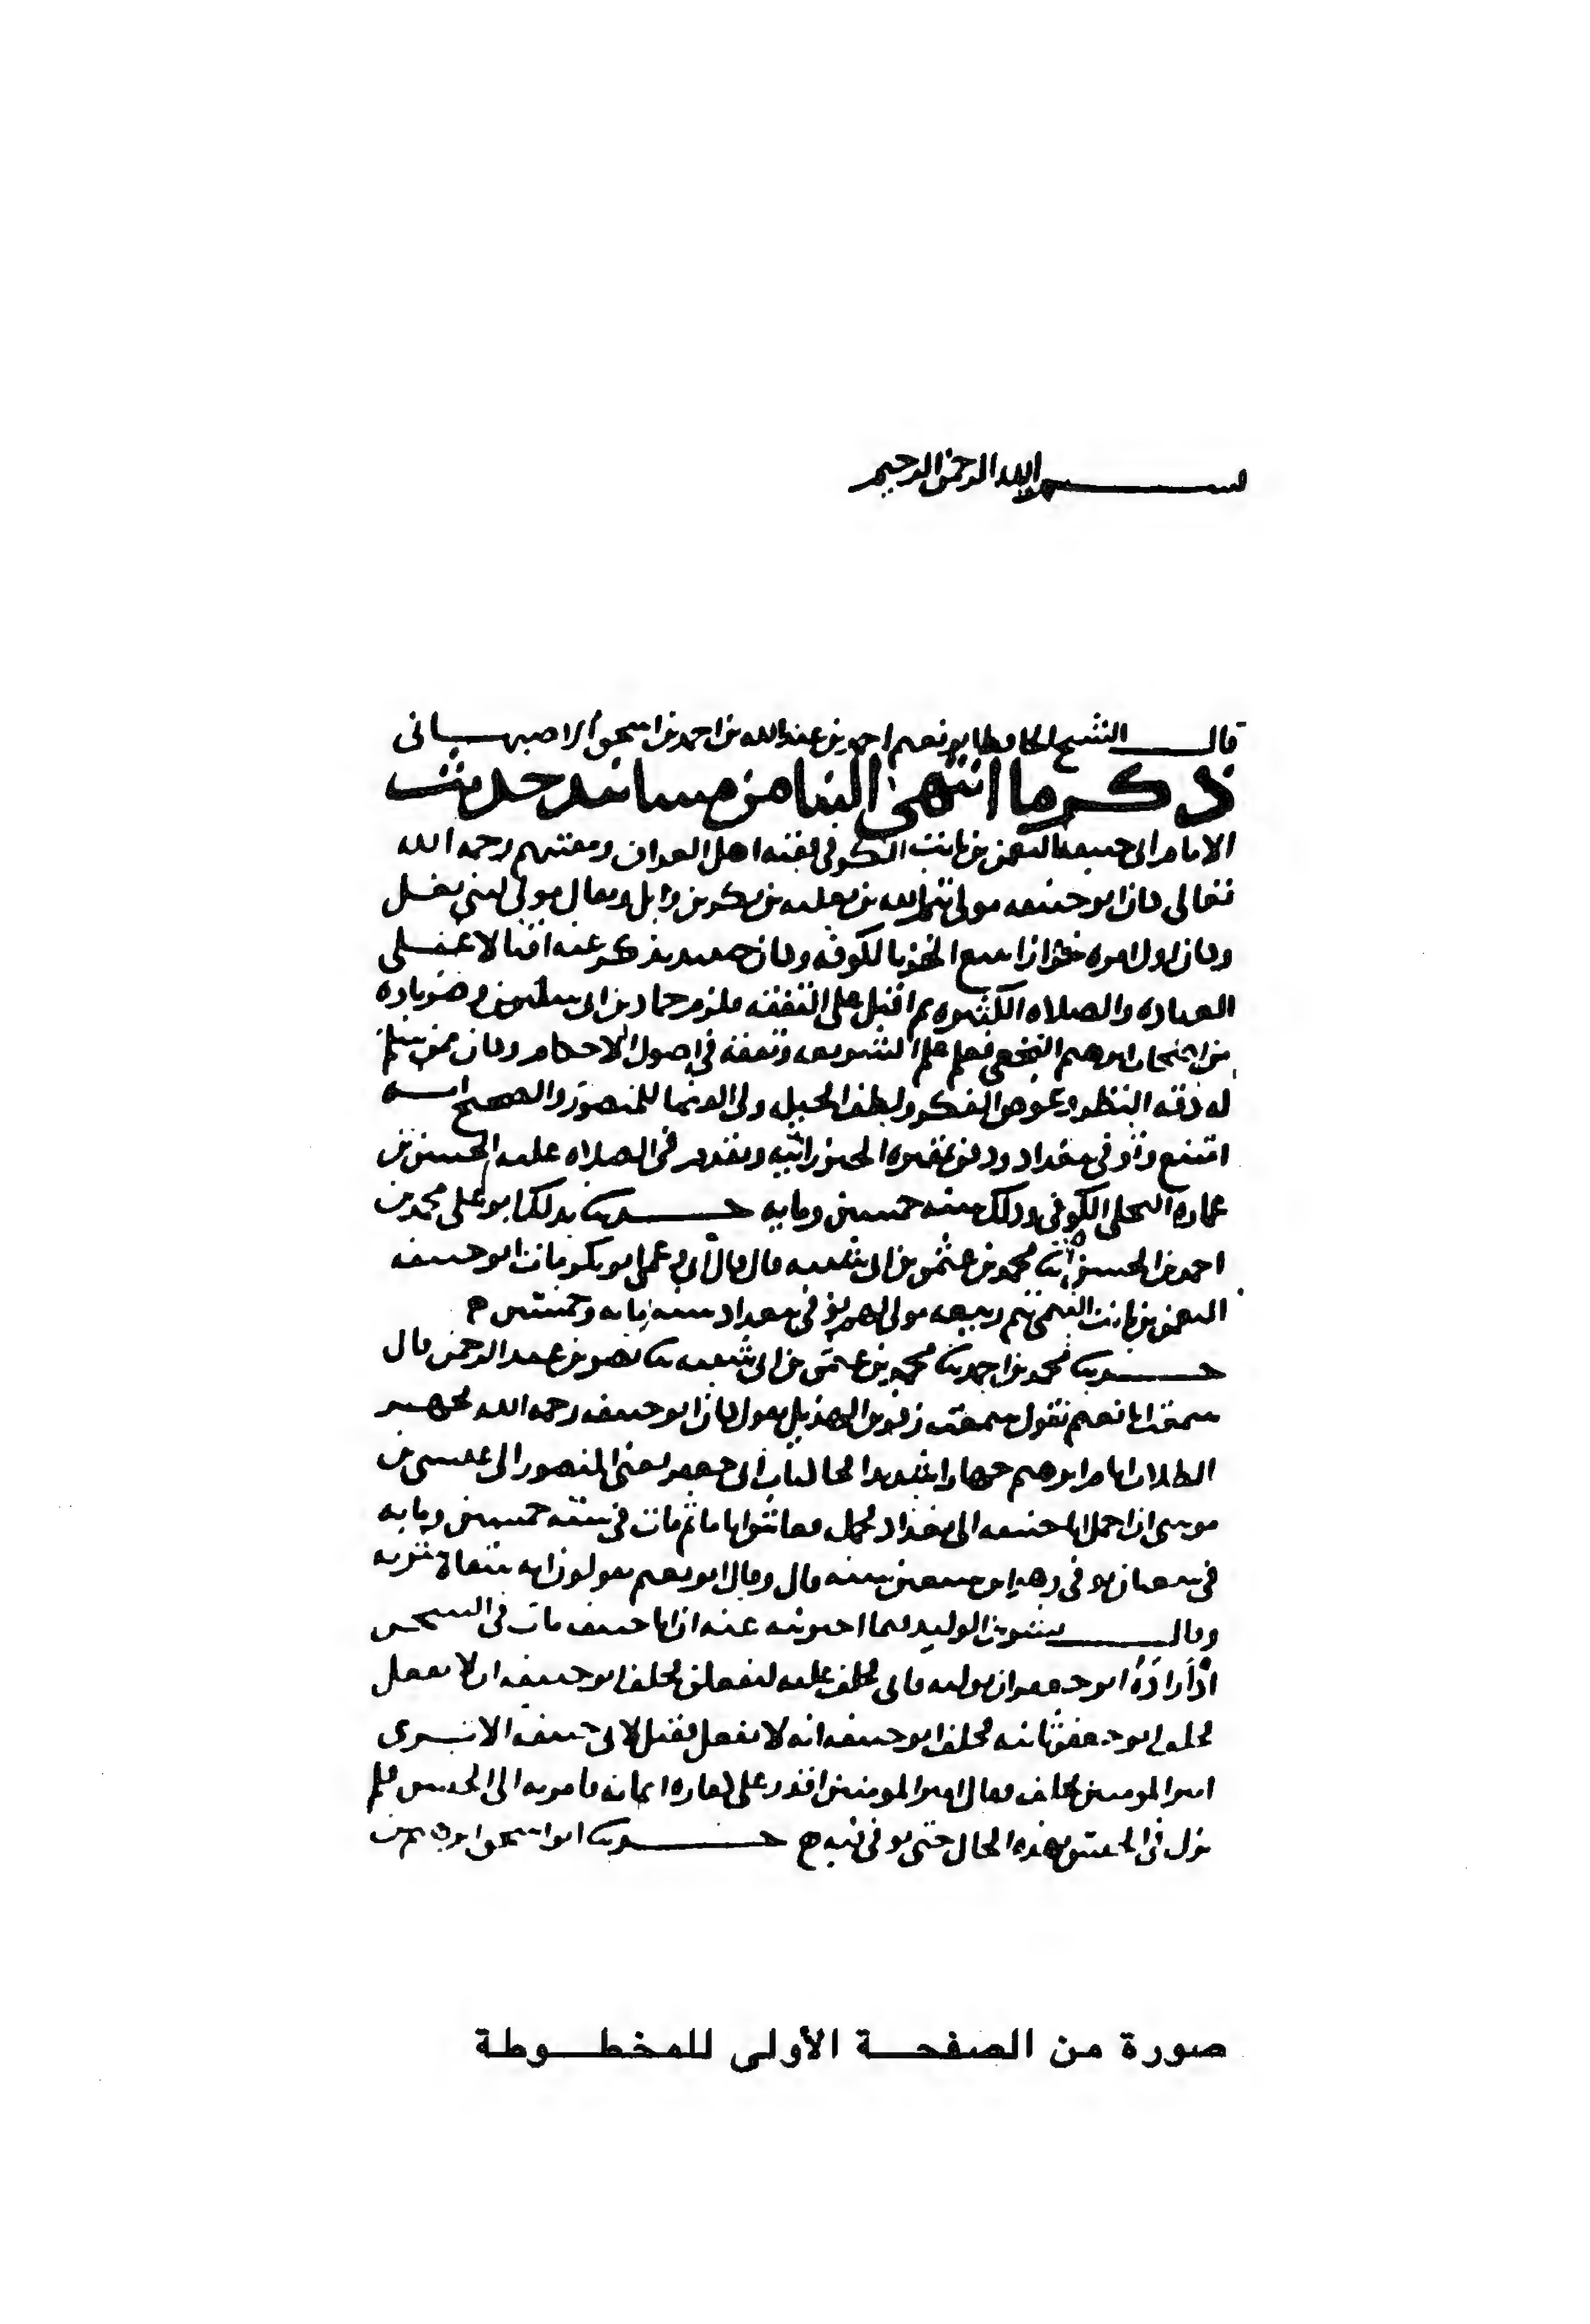 بسم الله الرحمن الرحيم
قال الشيخ الحافظ ابو نعيم احمد بن عبد الله بن احمد بن اسحق الاصبهاني
ذكر ما انتهى الينا من مسانيد حديث
الامام ابي حنيفه النعمن بن ثابت الكوفي فقيه اهل العراق ومفتيهم رحمه الله
تعالى كان ابو حنيفه مولى تيم الله بن ثعلبه بن بكر بن وايل ويقال مولى لبني نفل
وكان اول امره خزازا يبيع الخز بالكوفه وكان يذكر عنه اقبالا على
العباده والصلاه الكثيره ثم اقبل على التفقه فلزم حماد بن ابي سليمن وضرباوه
من اصحاب ابرهيم النخعي فعلم علم الشريعه وتفقه في اصول الاحكام وكان ممن يسلم
له دقه النظر وغوص الفكر ولطف الحيل ولي القضا للمنصور والصحيح انه
امتنع وتوفي ببغداد ودفن بمقبره الخيزرانيه وتقدم في الصلاه عليه الحسن بن
عماره البجلي الكوفي وذلك سنه خمسين ومايه حدثنا بذلك ابو علي محمد بن
احمد بن الحسن ثنا محمد بن عثمن بن ابي شيبه قال قال ابي وعمي ابو بكر مات ابو حنيفه
النعمن بن ثابت التيمي تيم ربيعه مولى لهم توفي ببغداد سنه مايه وخمسين ح
حدثنا محمد بن احمد ثنا محمد بن عثمن بن ابي شيبه ثنا نصر بن عبد الرحمن قال
سمعت ابا نعيم يقول سمعت زفر بن الهذيل يقول كان ابو حنيفه رحمه الله يجهر
الكلام ايام ابرهيم جهارا شديدا كتاب ابي جعفر يعني المنصور الى عيسى بن
موسى ان احمل ابا حنيفه الى بغداد فحمل فعاش اياما ثم مات في سنه خمسين ومايه
في توفي وهو ابن سبعين سنه قال وقال ابو نعيم يقولون انه سقاه شربه
وقال بشر بن الوليد فيما اخبرنيه عنه ان ابا حنيفه مات في السجن
اذ اراده ابو جعفر ان يوليه فابى فحلف عليه ليفعلن فحلف ابو حنيفه ان لا يفعل
فحلف ابو جعفر ثانيه فحلف ابو حنيفه انه لا يفعل فقيل لابي حنيفه الا ترى
امير المومنين يحلف فقال امير المومنين اقدر على كفاره ايمانه فامر به الى الحبس فلم
يزل في الحبس بهذه الحال حتى توفي فيه ح حدثنا ابو اسحق ابرهيم بن
صورة من الصفحة الأولى للمخطوطة